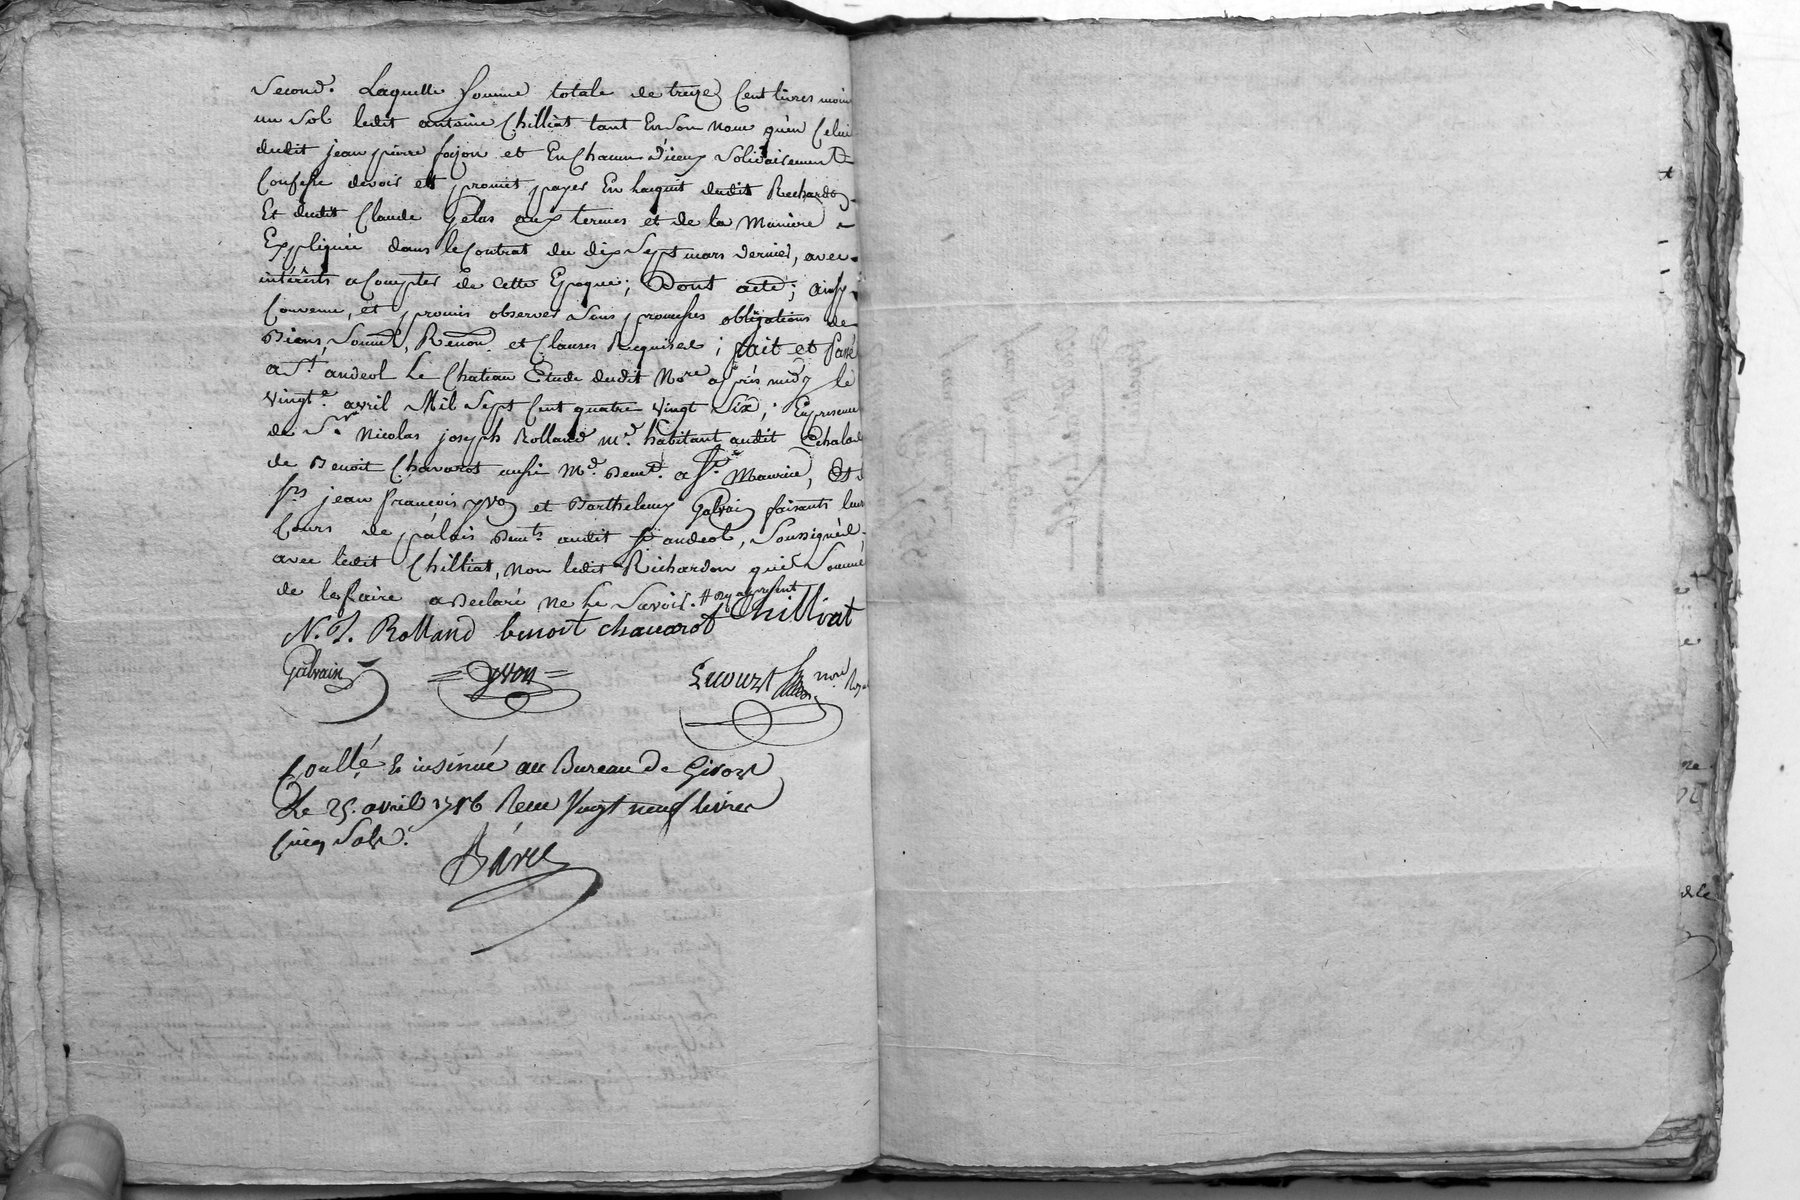 Second. Laquelle somme totale de treize Cent livres moin
un Sol ledit antoine Chilliat tant En Son Nom qu'en Celui
dudit jean pierre fajon et En Chacun d'iceux Solidairement
Confesse devoir et promet payer En l'acquit dudit Richardon
Et dudit Claude Gelas aux termes et de la Maniere
Expliquée dans le Contrat du dix Sept mars dernier, avec
intérêts a Compter de Cette Epoque; Dont acte; ainsy
Convenu, et promis observer Sous promesses obligations de
Biens, Soumn, Renonn. et Clauses Requises; fait et Passé
a St. andeol Le Chateau Etude dudit Nore après midy le
vingt. avril Mil Sept Cent quatre vingt Six; En presence
de Sr. Nicolas joseph Rolland md. habitant audit Echalas
de Benoit Chavarot aussi Md. Demt. a St. Maurice, Et
Srs jean francois yvon et Barthelemy Galvain faisants leur
Cours de palais Demts. audit St andeol, Soussignés,
avec ledit Chilliat, Non ledit Richardon qui Sommé
de le faire a Declaré Ne Le Savoir.
N. J. Rolland benoit chavarot Chilliat
Galvain yvon nore Roy
Conllé & insinué au Bureau de Givors
Le 25. avril 1786 Recu Vingt neuf livres
Cinq Sols.